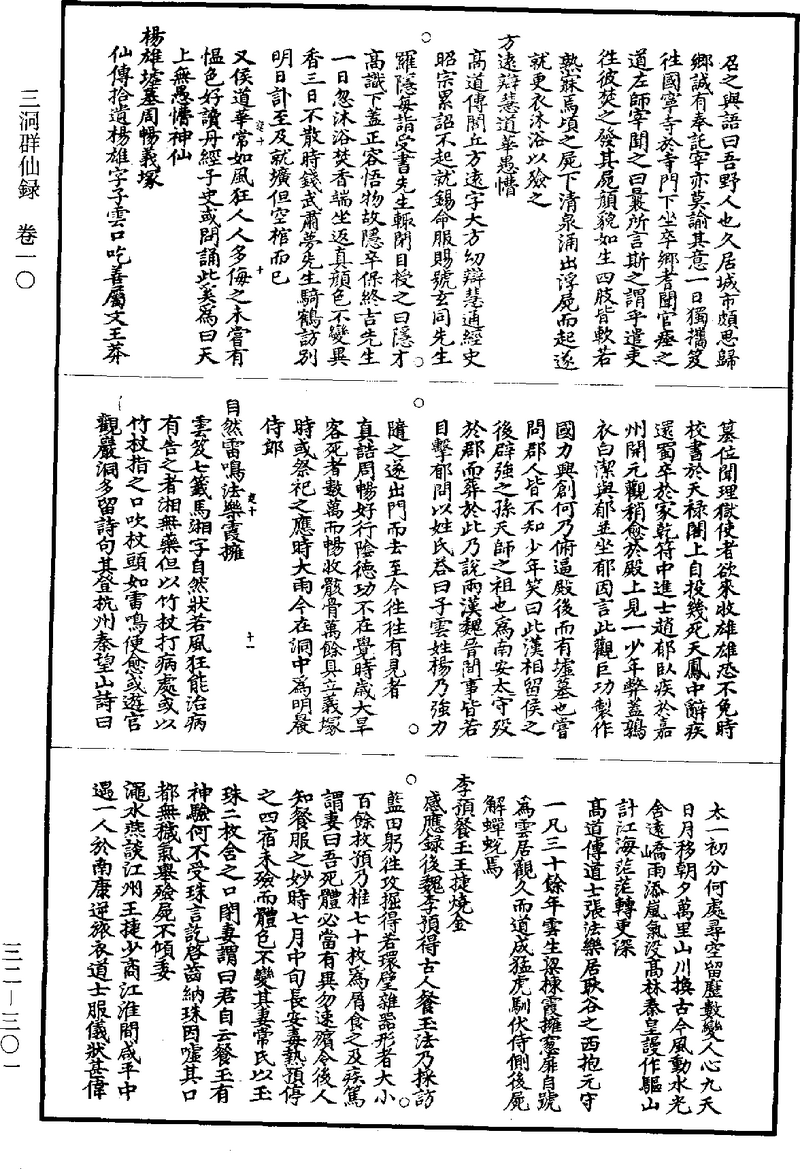 三洞群仙録　卷一〇
召之與語曰吾野人也久居城市頗思歸
鄉誠有奉託宰亦莫諭其意一日獨攜笈
往國寧寺於寺門下坐卒鄉耆聞官瘞之
道左師宰聞之曰曩所言斯之謂乎遣吏
往彼焚之發其屍顏貌如生四肢皆軟若
熟寐焉頃之屍下清泉涌出浮屍而起遂
就更衣沐浴以殮之
方遠辯慧道華愚懵
高道傳閭丘方遠字大方幼辯慧通經史
昭宗累詔不起就錫命服賜號玄同先生
羅隱每詣受書先生輒閉目授之曰隱才
高識下蓋正容悟物故隱卒保終吉先生
一日忽沐浴焚香端坐返真顏色不變異
香三日不散時錢武肅夢先生騎鶴訪別
明日訃至及就壙但空棺而已
又侯道華常如風狂人人多侮之未嘗有
愠色好讀丹經子史或問誦此奚為曰天
上無愚懵神仙
楊雄墟墓周暢義塚
仙傳拾遺楊雄字子雲口吃善屬文王莽
篡位聞理獄使者欲來收雄雄恐不免時
校書於天祿閣上自投幾死天鳳中辭疾
還蜀卒於家乾符中進士趙郁臥疾於嘉
州開元觀稍愈於殿上見一少年弊蓋鶉
衣白潔與郁並坐郁因言此觀巨功製作
國力興創何乃俯逼殿後而有墟墓也嘗
問郡人皆不知少年笑曰此漢相留侯之
後辟強之孫天師之祖也為南安太守歿
於郡而葬於此乃說兩漢魏晉間事皆若
目擊郁問以姓氏荅曰子雲姓楊乃強力
隨之遂出門而去至今往往有見者
真誥周暢好行陰德功不在覺時歲大旱
客死者數萬而暢收骸骨萬餘具立義塚
時或祭祀之應時大雨今在洞中為明晨
侍郎
自然雷鳴法樂霞擁
雲笈七籤馬湘字自然狀若風狂能治病
有告之者湘無藥但以竹杖打病處或以
竹杖指之口吹杖頭如雷鳴便愈或遊宮
觀巖洞多留詩句其登杭州秦望山詩曰
太一初分何處尋空留歷數變人心九天
日月移朝夕萬里山川換古今風動水光
舍遠嶠雨添嵐氣沒高林秦皇謾作驅山
計江海茫茫轉更深
高道傳道士張法樂居耿谷之西抱元守
一凡三十餘年雲生梁棟霞擁窻扉自號
為雲居觀久而道成猛虎馴伏侍側後屍
解蟬蛻焉
李預餐玉王捷燒金
感應錄後魏李預得古人餐玉法乃採訪
藍田躬往攻掘得若環璧雜器形者大小
百餘枚預乃椎七十枚為屑食之及疾篤
謂妻曰吾死體必當有異勿速殯令後人
知餐服之妙時七月中旬長安毒熱預停
之四宿未殮而體色不變其妻常氏以玉
珠二枚含之口閉妻謂曰君自云餐玉有
神驗何不受珠言訖啓齒納珠因噓其口
都無穢氣舉殮屍不傾委
澠水燕談江州王捷少商江淮間咸平中
遇一人於南康逆旅衣道士服儀狀甚偉
三二—三〇一